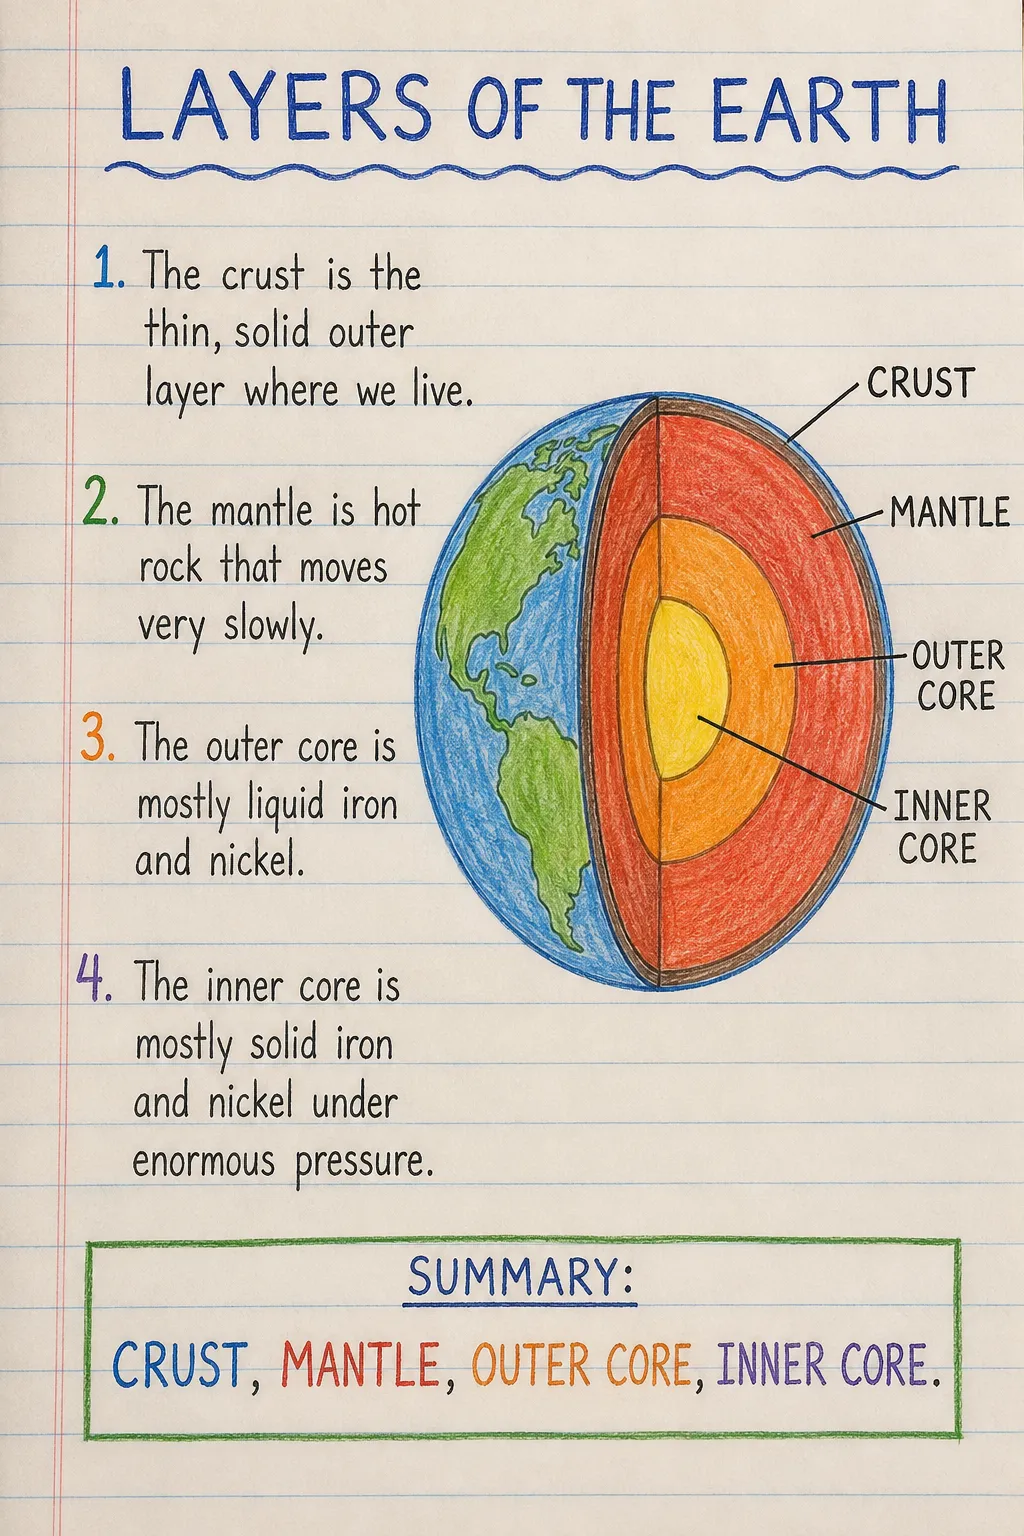 LAYERS OF THE EARTH
1. The crust is the
thin, solid outer
layer where we live.
2. The mantle is hot
rock that moves
very slowly.
3. The outer core is
mostly liquid iron
and nickel.
4. The inner core is
mostly solid iron
and nickel under
enormous pressure.
CRUST
MANTLE
OUTER
CORE
INNER
CORE
SUMMARY:
CRUST, MANTLE, OUTER CORE, INNER CORE.